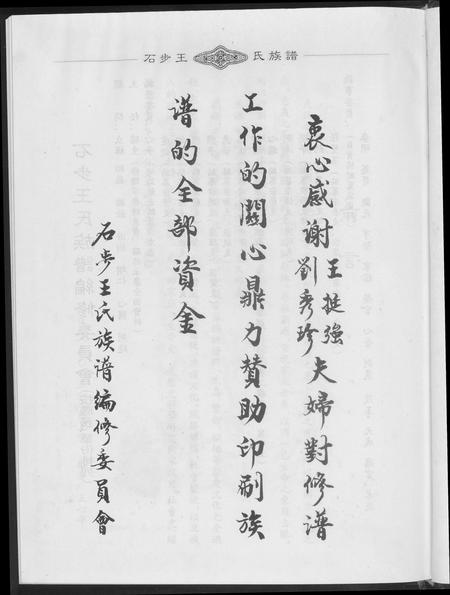 石步王氏族譜
衷心感谢王挺强劉秀珍夫婦對修谱
工作的關心鼎力赞助印刷族
谱的全部資金
石步王氏族谱编修委員會